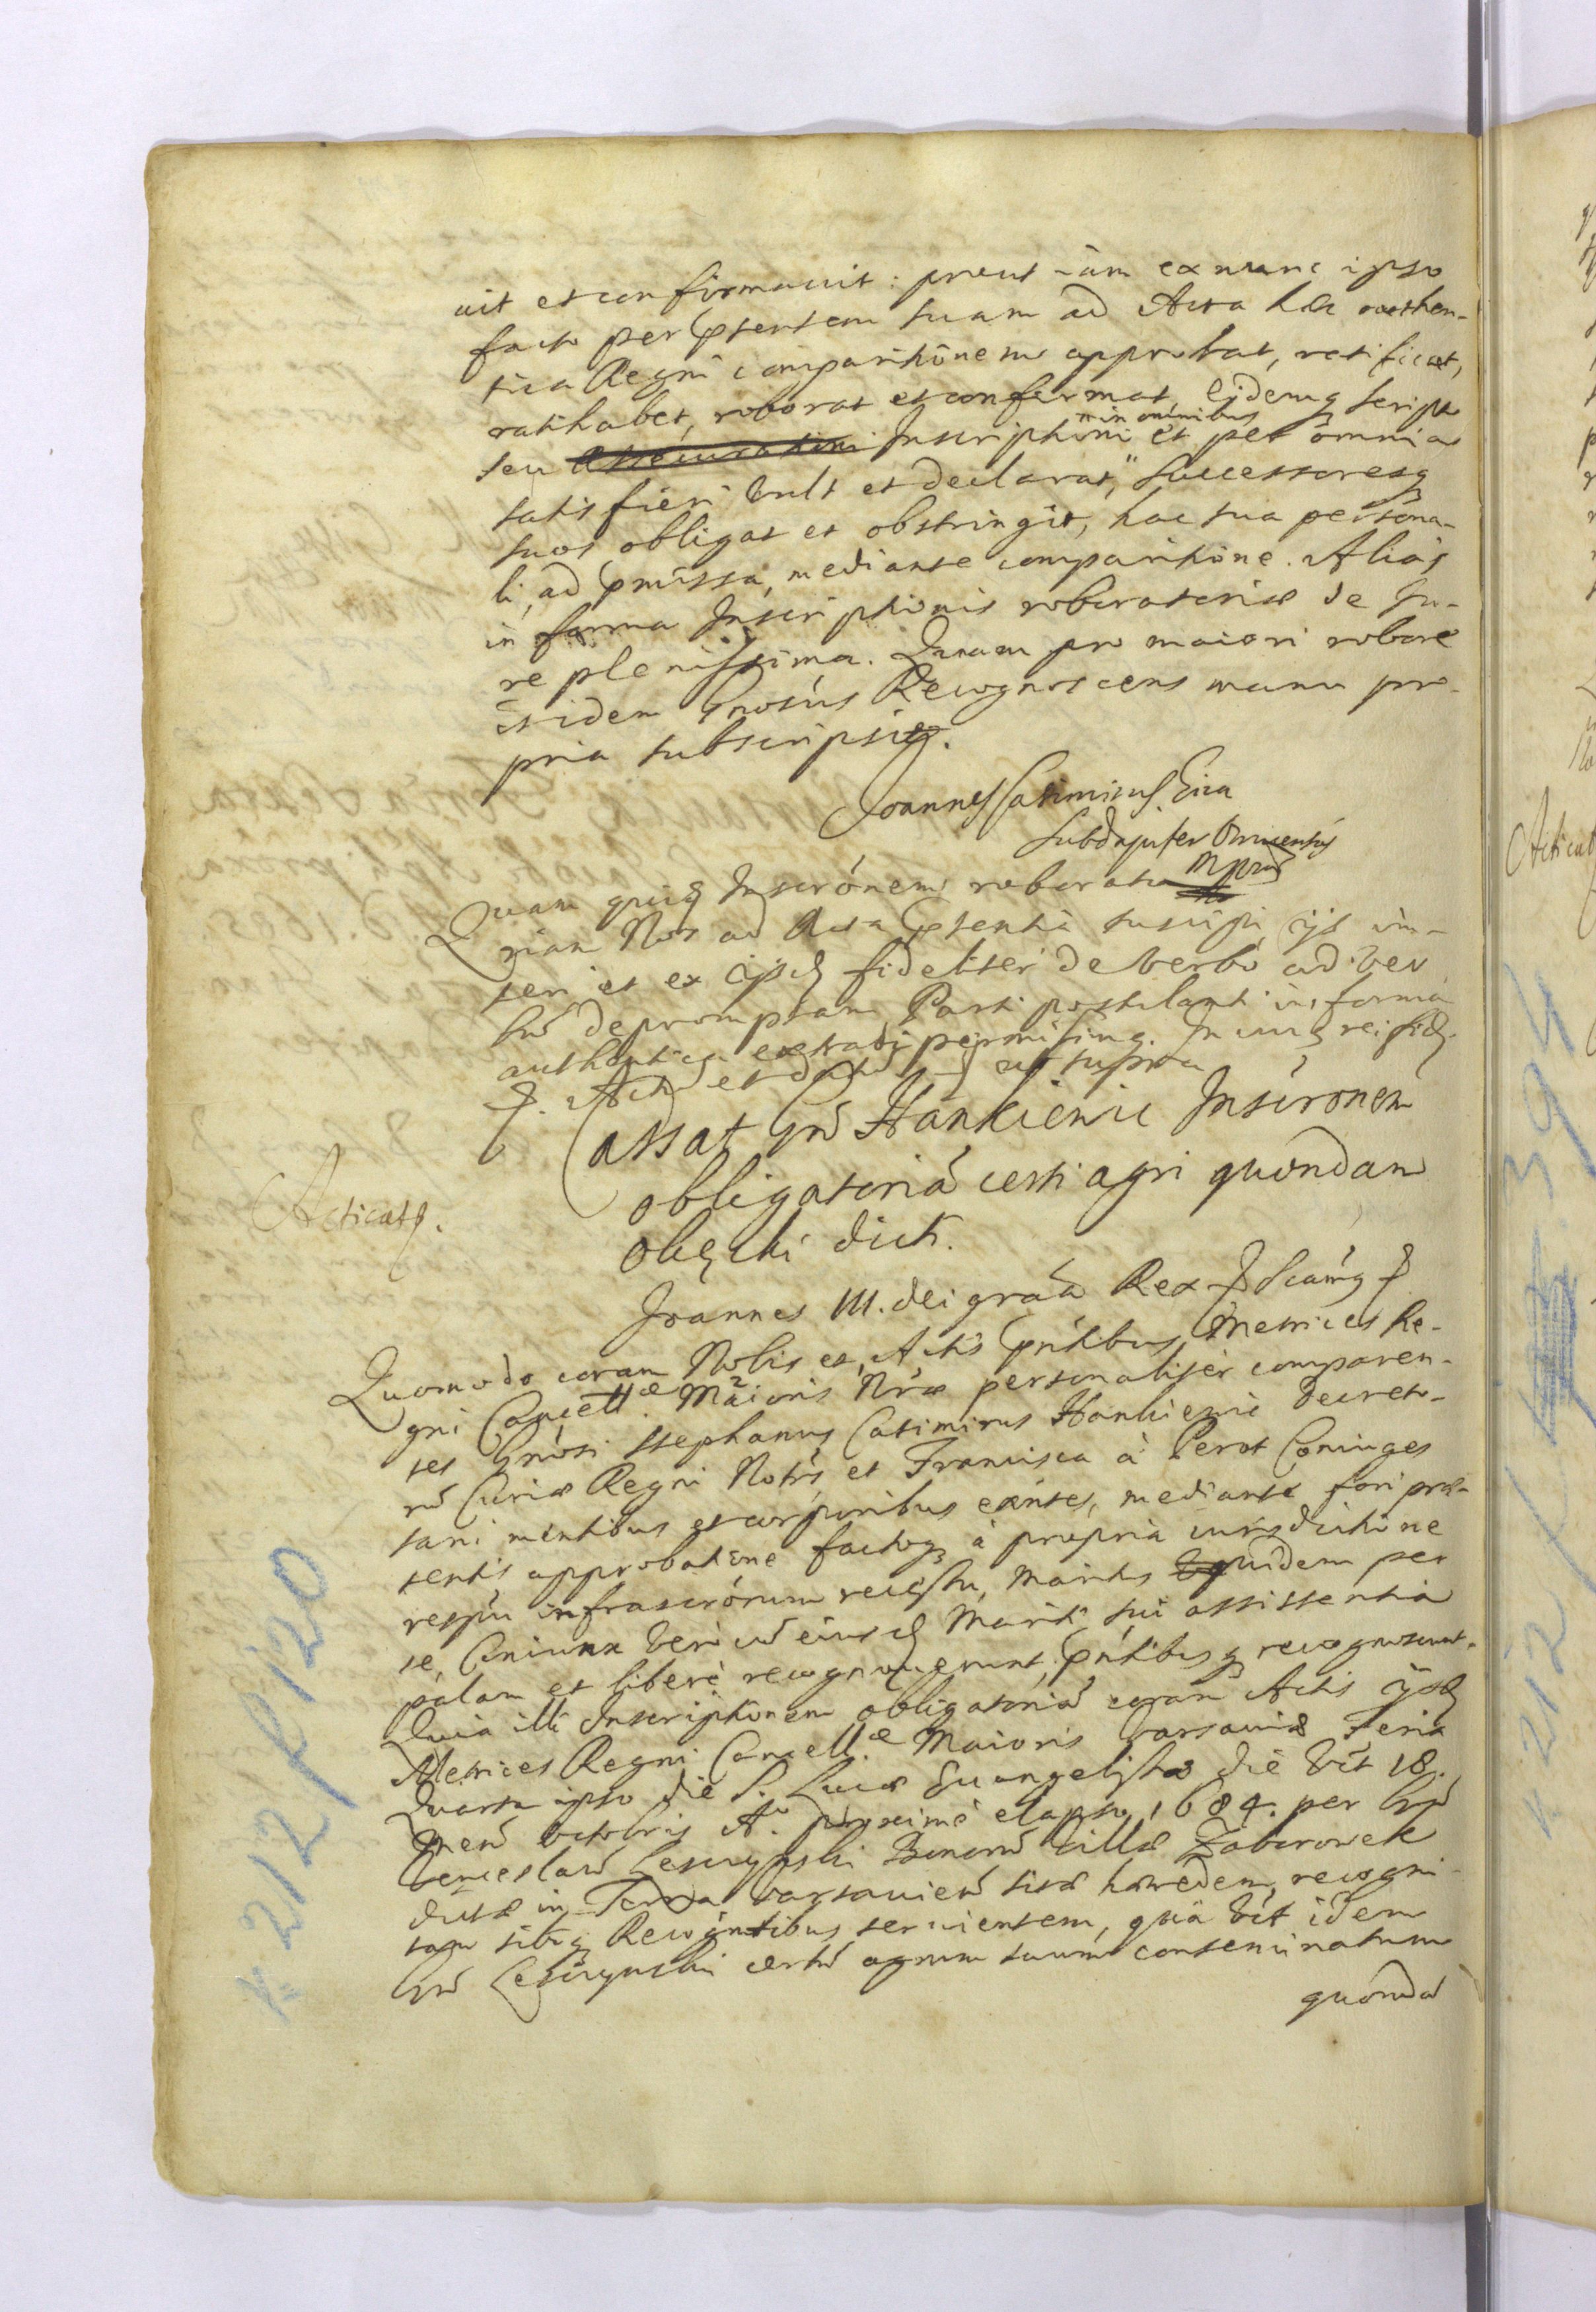 uit et confirmauit: prout iam ex nunc ipso
facto per pśentem suam ad Acta haec authen-
tica Regni comparitionem approbat, ratificat,
ratihabet, roborat et confirmat, eidemq scripto
in omnibus
seu Assecurationi Inscriptioni et per omnia
satisfieri vult et declarat, Successoresq
suos obligat et obstringit, hac sua persona-
li, ad pmissa, mediante comparitione. Alias
in forma Inscriptionis roboratoriae de Ju-
re plenissima. Quam pro maiori robore
et idem Gnosus Recognoscens manu pro-
pria subscripsit.
Joannes Casimirus
Subdapifer
mpria
Quam quidem Inscrónem roborato
riam Nos ad Acta psentia suscipi, ijs in-
seri et ex ijsd fideliter de verbo ad ver
bū depromptam Parti postulanti in forma
authentica extradi permisimq. In cuiq rei fidē
Actū et datū ut supra
Cassat Gnd Hankiewic Inscronem
obligatoriá certi agri quondam
dict.
Acticatq.
Joannes III. dei graā Rex Scāmq
Quomodo coram Nobis et Actis pntibus Metrices Re-
gni Cancellae Maioris Nrae personaliter comparen-
tes Gnósi Stephanus Casimirus Hankiewic Decreto-
rū Curiae Regni Notrs et Francisca à Perot Coniuges
sani mentibus et corporibus exntes, mediante fori prae-
sentis approbatione factoq à propria iurisdictione
respū infrascrórum recessu, Maritus quidem per
se, Coniunx verò cū eiusd Mariti sui assistentia
palam et liberè recognouerunt, pntibusq recognoscunt.
Quia illi Inscriptionem obligatoriā coram Actis ijsd
Metrices Regni Cancellae Maioris Varsauiae Feria
Quarta ipso die S. Lucae Euangelistae die vīt 18.
Mens Octobris Ao proxime elapso 1684. per Gnd
Venceslaū Leszczynski Bonorū villae Zaborowek
dictae in Terra Varsauien sitae haeredem, recogni-
tam sibiq Recogntibus seruientem, quâ vīt idem
Gnd Leszczynski certū agrum suum conseminatum
quondā
K 212 f 120